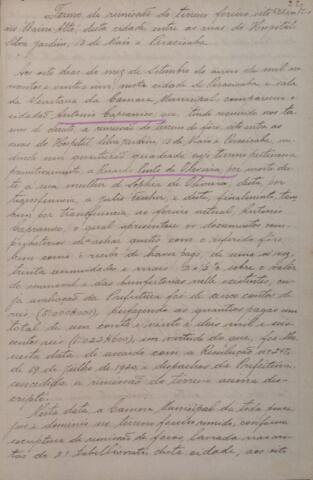 Termo de remissão do terreno foreiro, sito
no Bairro Alto, desta cidade entre as ruas do Hospital
Silva Jardim, 13 de Maio e Piracicaba
Aos sete dias do mez de Setembro do anno de mil no
vecentos e vinte e um, nesta cidade de Piracicaba e sala
da Secretaria da Camara Municipal, compareceu o
cidadão Antonio Capranico que, tendo requerido nos ter
mos de direito, a remissão do terreno de fôro, sito entre as
ruas do Hospital, Silva Jardim, 13 de Maio e Piracicaba, me
dindo um quarteirão quadrado cujo terreno pertencia
primitivamente a Ricardo Pinto de Oliveira, por morte des
te, a sua mulher d. Sophia de Oliveira; desta, por
transferencia, a Julio e deste, finalmente, tam
bem por transferencia ao foreiro actual, Antonio
Capranico, o qual apresentou os documentos com
probatorios de achar quites com o referido fôro
bem como o recibo de haver pago, de uma os
annuidades e mais 2½% sobre o valor
do immovel e das bemfeitorias nelle existentes, cu
ja avaliação da Prefeitura foi de cinco contos de
reis (5:000$000), perfazendo as quantias pagas um
total de um conto e vinte e dois mil e seis
centos reis (1:022$600), em virtude do que, foi-lhe
nesta data de accordo com a Resolução nº
de 19 de Julho de 1920, e despacho da Prefeitura,
concedida a remissão do terreno acima des
cripto.
Nesta data, a Camara Municipal dá toda posse
jus e dominio no terreno foreiro remido, conforme
escriptura de remissão de fôros lavrada nas no
tas do 2º Tabellionato desta cidade, aos sete